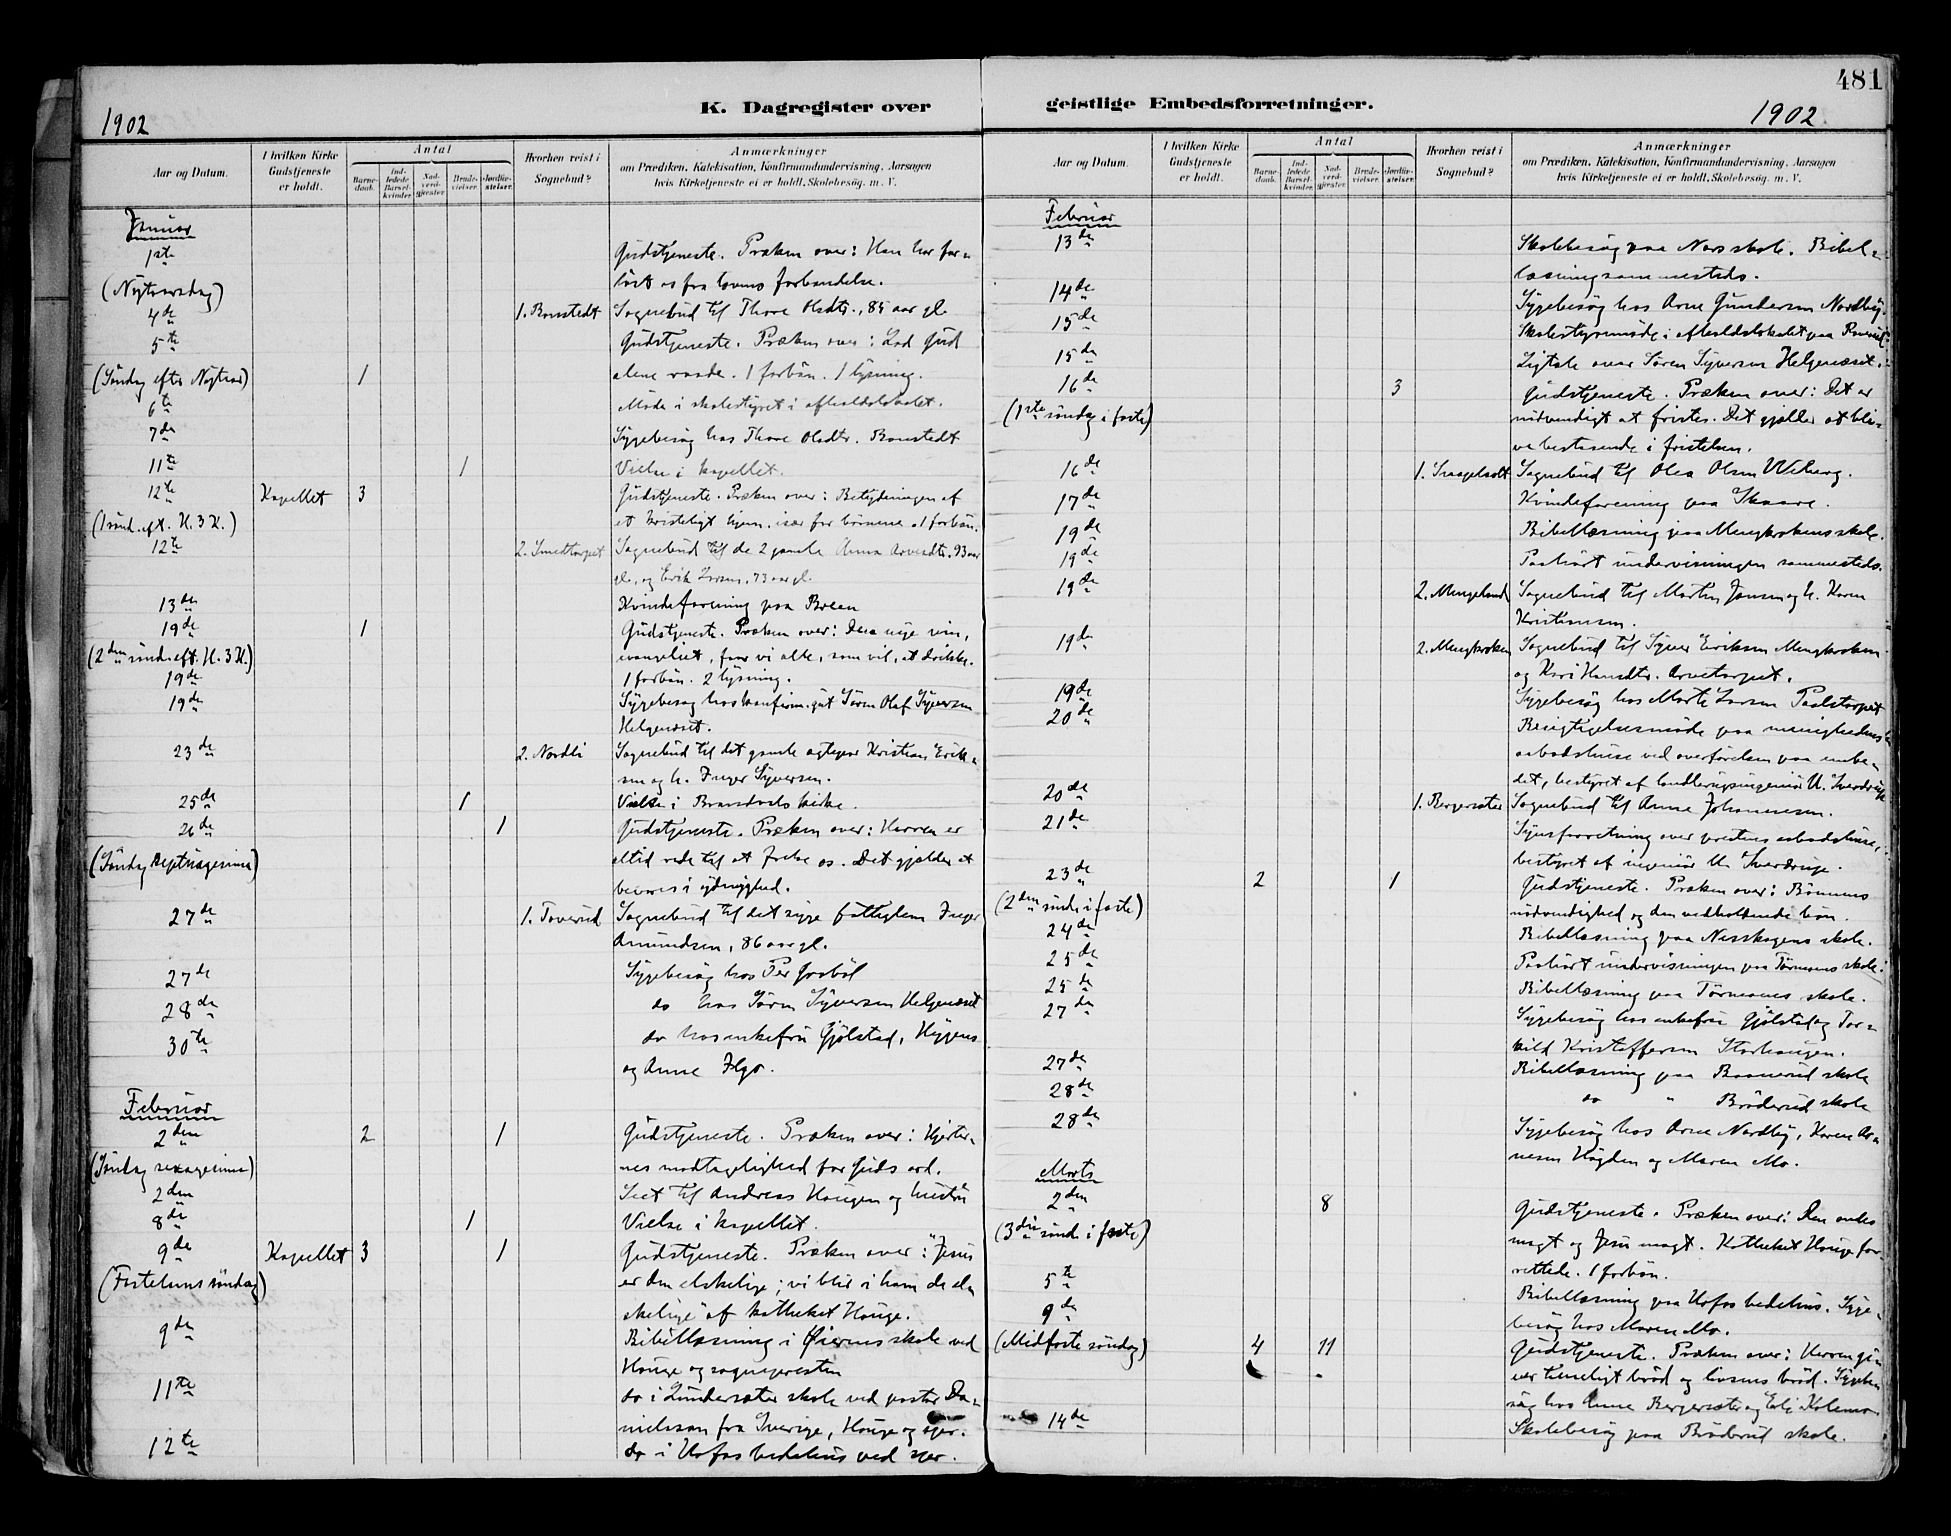 1902
K. Dagregister over
Aar og Datum.
I hvilken Kirke Gudstjeneste er holdt.
Antal
Barnedaab.
Indledede Barselkvinder.
Nadverdgjester.
Brudevielser.
Jordfæstelser.
Hvorhen reist i Sognebud?
Anmærkninger
om Prædiken, Katekisation, Konfirmandundervisning, Aarsagen
hvis Kirketjeneste ei er holdt, Skolebesøg. m. V.
Januar
1ste Gudstjeneste. Præken over: Han har for-
(Nytaarsdag) løst os fra lovens forbandelse.
4de 1. Bonstedt Sognebud til Thore Olsdtr., 85 aar gl.
5te Gudstjeneste. Præken over: Lad Gud
(Søndag efter Nytaar) 1 alene raade. 1 forbøn. 1 lysning.
6te Møde i skolestyret i afholdslokalet.
7de Sygebesøg hos Thore Olsdtr. Bonstedt
11te 1 Vielse i kapellet.
12te Kapellet 3 Gudstjeneste. Præken over: Betydningen af
(1 sønd. eft. H. 3 K.) et kristeligt hjem, især for børnene. 1 forbøn.
12te 2. Smedtorpet Sognebud til de 2 gamle Anna Arvesdtr. 93 aar
gl., og Erik Larsen, 73 aar gl.
13de Kvindeforening paa Breen
19de 1 Gudstjeneste. Præken over: Den nye vin,
(2den sønd. eft. H. 3 K.) evangeliet, faar vi alle, som vil, at drikke.
19de 1 forbøn. 2 lysning.
19de Sygebesøg hos konfirm. gut Søren Olaf Syversen
Helgenæset.
23de 2. Nordli Sognebud til det gamle egtepar Kristian Erik-
sen og h. Inger Syversen.
25de 1 Vielse i Brandvals kirke.
26de 1 Gudstjeneste. Præken over: Herren er
(Søndag septuagesima) altid rede til at frelse os. Det gjælder at
bevares i ydmyghed.
27de 1. Toverud Sognebud til det syge fattiglem Inger
Amundsen, 86 aar gl.
27de Sygebesøg hos Per
28de do hos Søren Syversen Helgenæset
30te do hos enkefru Gjølstad, Hyggens
og Anne
Februar
2den 2 1 Gudstjeneste. Præken over: Hjerter-
(Søndag sexagesima) nes modtagelighed for Guds ord.
2den til Andreas Haugen og hustru
8de 1 Vielse i kapellet.
9de Kapellet 3 1 Gudstjeneste. Præken over: "Jesus
(Fastelavns søndag) er den elskelige; vi blir i ham de el-
skelige" af katheket Hauge.
9de Bibellæsning i Øiernes skole ved
Hauge og sognepresten
11te do i Lundersæter skole ved pastor Da-
nielsson fra Sverige, Hauge og spr.
12te do i Hofos bedehus ved spr.
481
geistlige Embedsforretninger.
1902
Aar og Datum.
I hvilken Kirke Gudstjeneste er holdt.
Antal
Barnedaab.
Indledede Barselkvinder.
Nadverdgjester.
Brudevielser.
Jordfæstelser.
Hvorhen reist i Sognebud?
Anmærkninger
om Prædiken, Katekisation, Konfirmandundervisning, Aarsagen
hvis Kirketjeneste ei er holdt, Skolebesøg. m. V.
Februar
13de Skolebesøg paa Nors skole. Bibel-
læsning sammesteds.
14de Sygebesøg hos Arne Gundersen Nordby.
15de Skolestyremøde i afholdslokalet paa
15de Ligtale over Søren Syversen Helgenæset.
16de 3 Gudstjeneste. Præken over: Det er
(1ste søndag i faste) nødvendigt at fristes. Det gjælder at bli-
ve bestaaende i fristelsen.
16de 1. Sognebud til Olea Olsen
17de Kvindeforening paa Skaare.
19de Bibellæsning paa Mengkrokens skole.
19de Paahørt undervisningen sammesteds.
19de 2. Sognebud til Martin Jansen og h. Karen
Kristiansen.
19de 2. Mengkroken Sognebud til Syver Eriksen Mengkroken
og Kari Hansdtr. Arvetorpet.
19de Sygebesøg hos Marte Larsen
20de Besigtigelsesmøde paa menighedens
arbodshuse ved overførelsen paa embe-
det, bestyret af landbrugsingeniør U. Sverdrup
20de 1. Bergersæter Sognebud til Anne Johannesen.
21de Synsforretning over prestens aabodshuse,
bestyret af ingeniør U. Sverdrup.
23de 2 1 Gudstjeneste. Præken over: Bønnens
(2den sønd. i faste) nødvendighed og den vedholdende bøn.
24de Bibellæsning paa Nesskogens skole.
25de Paahørt undervisningen paa Tørmoens skole.
25de Bibellæsning paa Tørmoens skole.
27de Sygebesøg hos enkefru Gjølstad og Tor-
kild Kristoffersen Storhaugen.
27de Bibellæsning paa skole
28de do " Brøderud skole
28de Sygebesøg hos Arne Nordby, Karen Ar-
nesen Høgden og Maren Mo.
Marts
2den 8 Gudstjeneste. Præken over: Den ondes
(3die sønd. i faste) magt og Jesu magt. Katheket Hauge for-
rettede. 1 forbøn.
5te Bibellæsning paa Hofos bedehus. Syge-
9de besøg hos Maren Mo.
(Midfaste søndag) 4 11 Gudstjeneste. Præken over: Herren gi-
ver timeligt brød og livsens brød. Sygebe-
søg hos Anne Bergersæter og
14de Skolebesøg paa Brøderud skole.